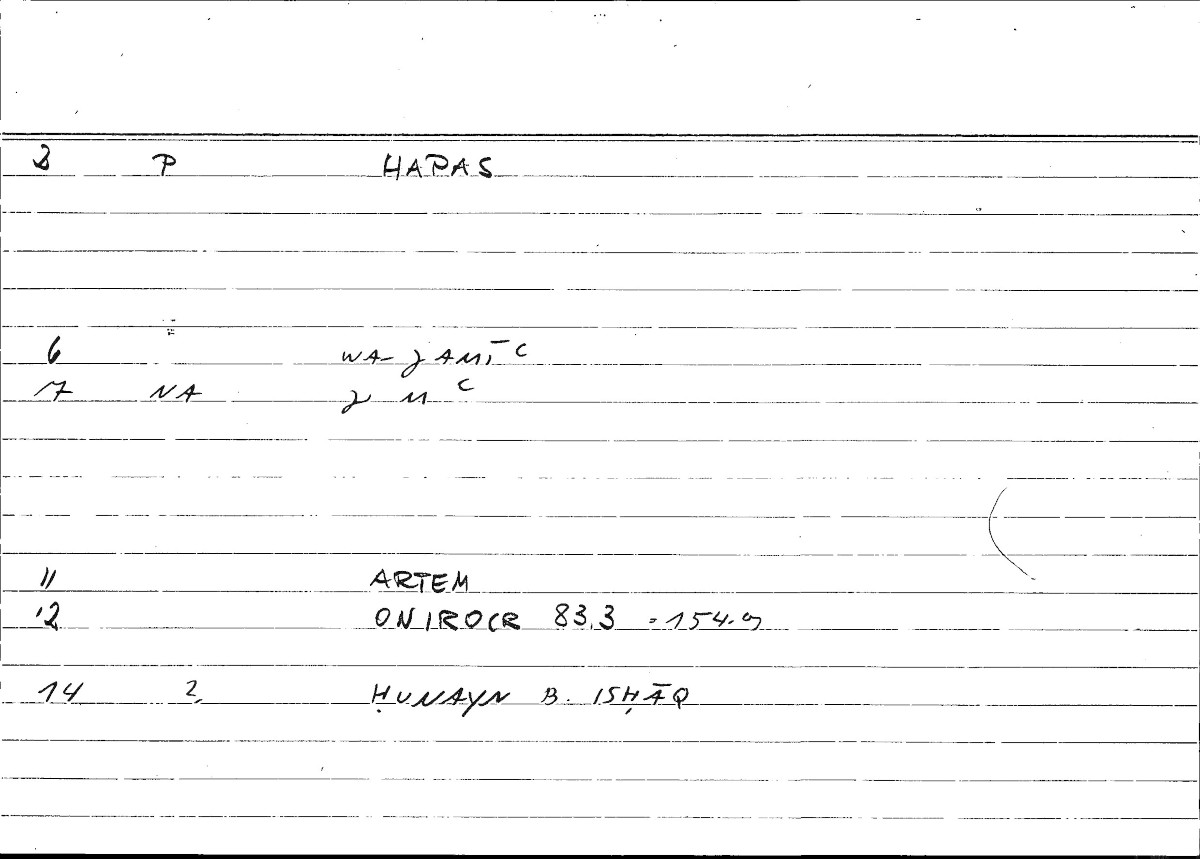 3 P HAPAS
6 WA-JAMĪ C
7 NA J M C
11 ARTEM
12 ONIROCR 83.3 = 154.9
14 2 ḤUNAYN B. ISḤĀQ